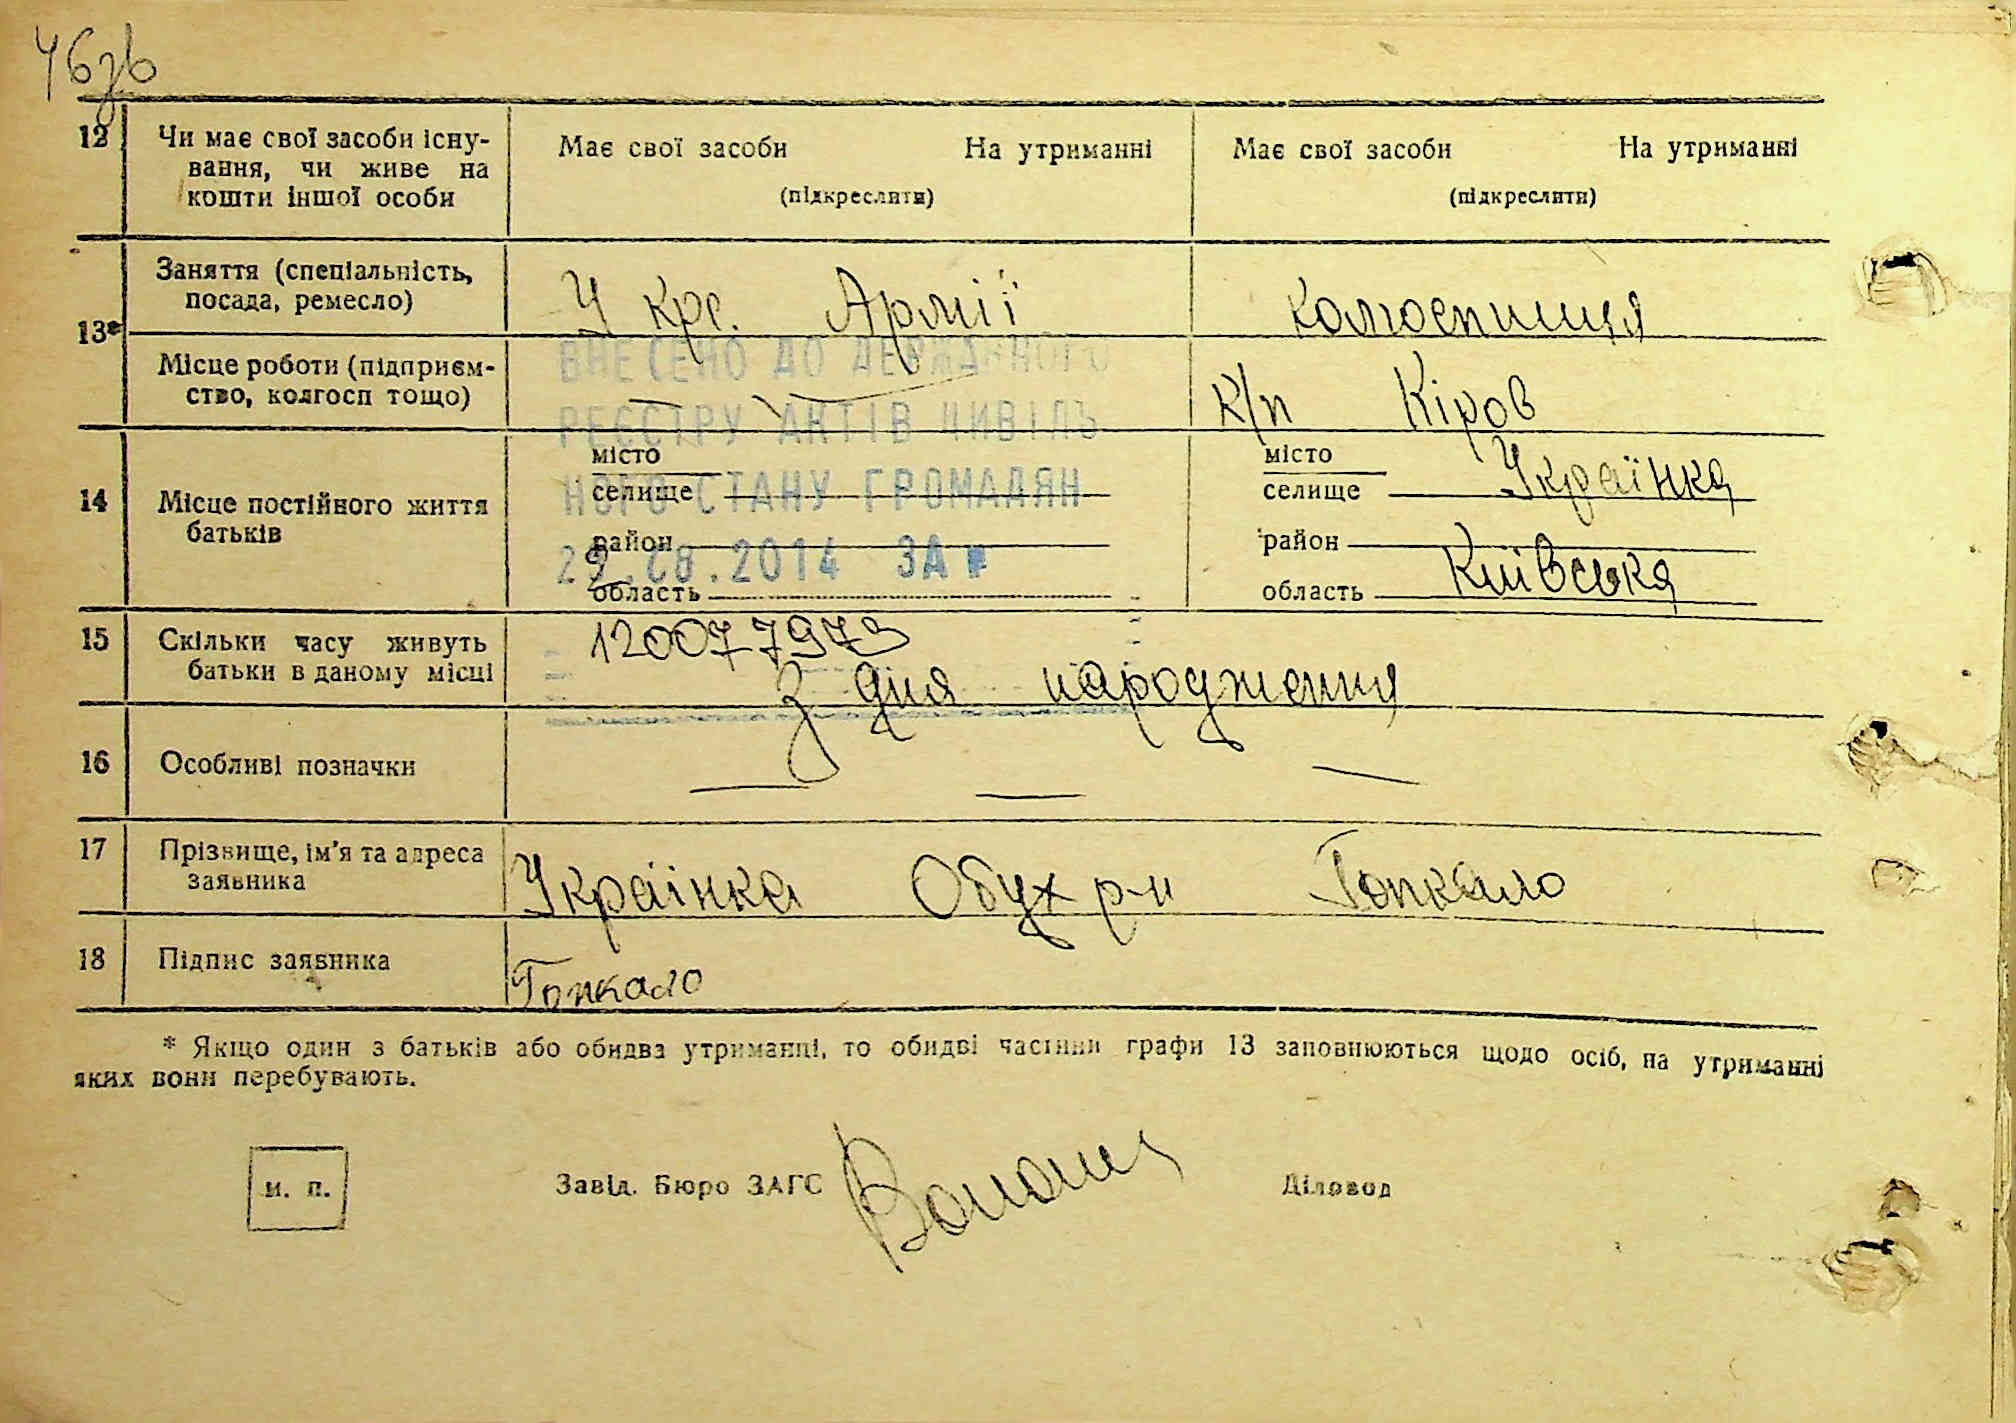 46зв
12 Чи має свої засоби існу-
вання, чи живе на
кошти іншої особи
Має свої засоби На утриманні
(підкреслити)
Має свої засоби На утриманні
(підкреслити)
13*
Заняття (спеціальність,
посада, ремесло)
У кр. Армії
колгоспниця
Місце роботи (підприєм-
ство, колгосп тощо)
к/п Кіров
ВНЕСЕНО ДО ДЕРЖАВНОГО
РЕЄСТРУ АКТІВ ЦИВІЛЬ
НОГО СТАНУ ГРОМАДЯН
29.08.2014 ЗА №
14 Місце постійного життя
батьків
місто
селище
район
область
місто
селище Українка
район
область Київська
15 Скільки часу живуть
батьки в даному місці
12007 7973
З дня народження
16 Особливі позначки
17 Прізвище, ім'я та адреса
заявника
Українка Обух р-н Гопкало
18 Підпис заявника
Гопкало
* Якщо один з батьків або обидва утриманні, то обидві частини графи 13 заповнюються щодо осіб, на утриманні
яких вони перебувають.
м. п.
Завід. Бюро ЗАГС
Діловод